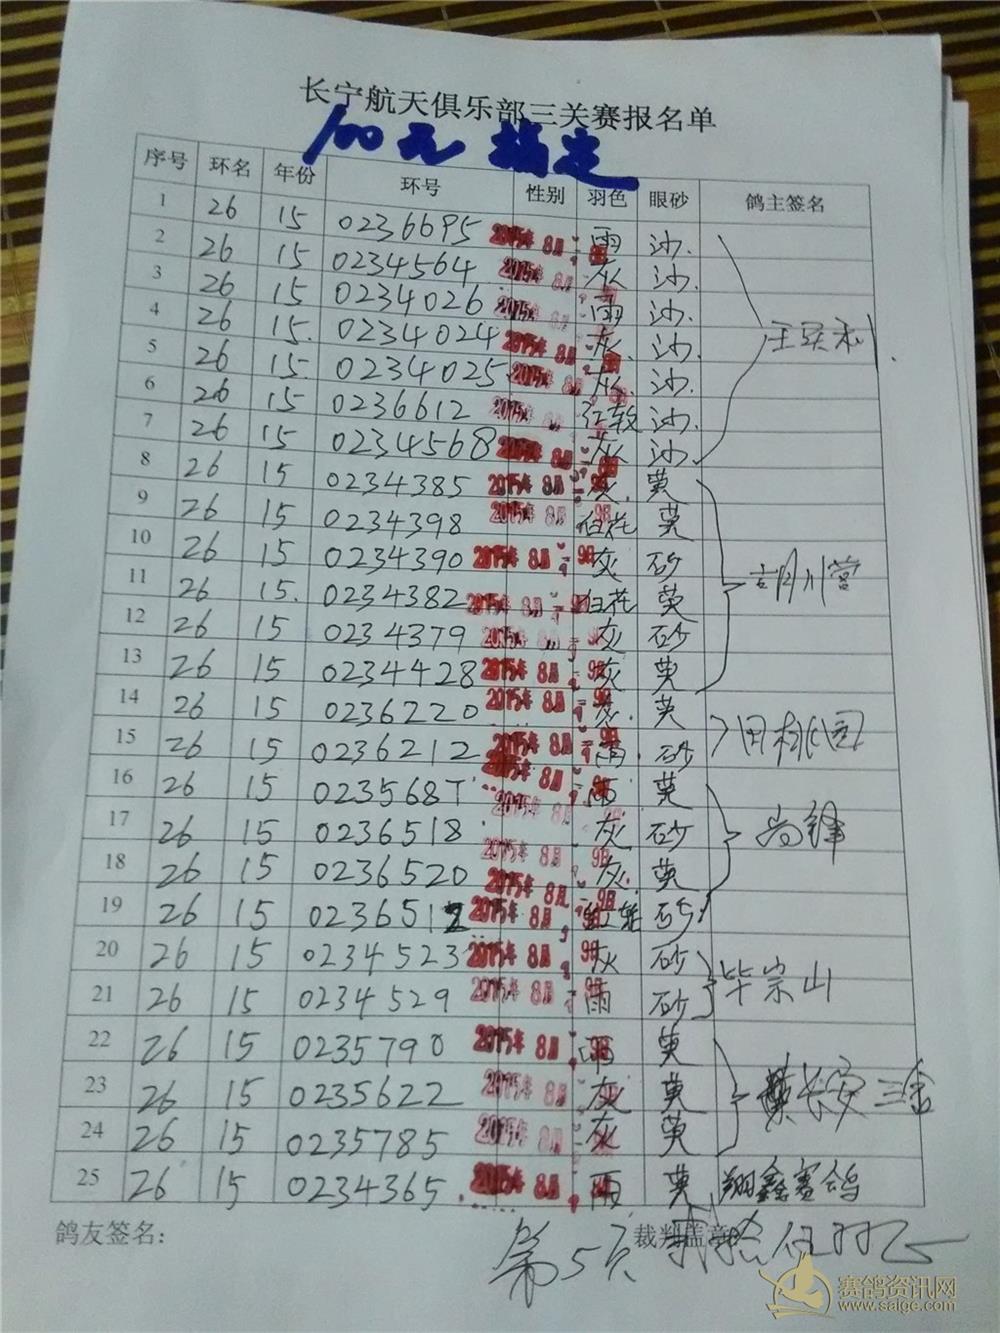 长宁航天俱乐部三关赛报名单
100元 指定
序号 环名 年份 环号 性别 羽色 眼砂 鸽主签名
1 26 15 0236695 2015年8月 雨 沙.
2 26 15 0234564 2015年8月 灰 沙.
3 26 15 0234026 2015年 雨 沙.
4 26 15. 0234024 2015年8月 灰. 沙.
5 26 15. 0234025 2015年8月 灰. 沙.
6 26 15 0236612 2015年 沙.
7 26 15 0234568 灰 沙.
8 26 15 0234385 2015年8月 9日 灰. 黄
9 26 15 0234398 2015年8月 9日 白花 黄
10 26 15 0234390 2015年8月 9日 灰 砂
11 26 15. 0234382 2015年8月 白花 黄
12 26 15 0234379 2015年 灰 砂
13 26 15 0234428 2015年8月 9日 灰 黄
14 26 15 0236220 2015年8月 灰. 黄
15 26 15 0236212 2015年8月 雨. 砂
16 26 15 2015年8月 雨 黄
17 26 15 0236518 灰 砂
18 26 15 0236520 2015年8月 9日 灰. 黄
19 26 15 2015年8月 砂
20 26 15 0234523 2015年8月 9日 灰 砂
21 26 15 0234529 2015年8月 雨 砂
毕宗山
22 26 15 0235790 2015年8月 雨 黄
23 26 15 0235622 2015年8月 灰 黄
24 26 15 0235785 2015年8月 灰 黄
25 26 15 0234365 2015年8月 雨 黄 翔鑫赛鸽
鸽友签名： 裁判盖章
第5页
赛鸽资讯网
www.saige.com